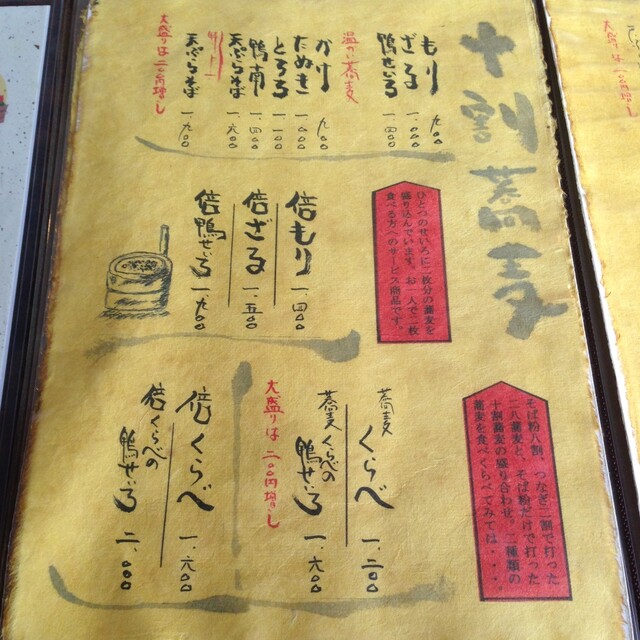 十割蕎麦
もり 九〇〇
ざる 一、〇〇〇
鴨せいろ 一、四〇〇
温かい蕎麦
かけ 九〇〇
たぬき 一、〇〇〇
とろろ 一、一〇〇
鴨南 一、四〇〇
天ぷらそば 一、六〇〇
天ぷらそば 一、九〇〇
大盛りは二〇〇円増し
ひとつのせいろに二枚分の蕎麦を
盛り込んでいます。お一人で二枚
食べる方へのサービス商品です。
倍もり 一、四〇〇
倍ざる 一、五〇〇
倍鴨せいろ 一、九〇〇
そば粉八割、つなぎ二割で打った
二八蕎麦と、そば粉だけで打った
十割蕎麦の盛り合わせ。二種類の
蕎麦を食べくらべてみては・・・。
蕎麦くらべ 一、二〇〇
蕎麦くらべの鴨せいろ 一、六〇〇
大盛りは二〇〇円増し
倍くらべ 一、六〇〇
倍くらべの鴨せいろ 二、〇〇〇
大盛りは二〇〇円増し